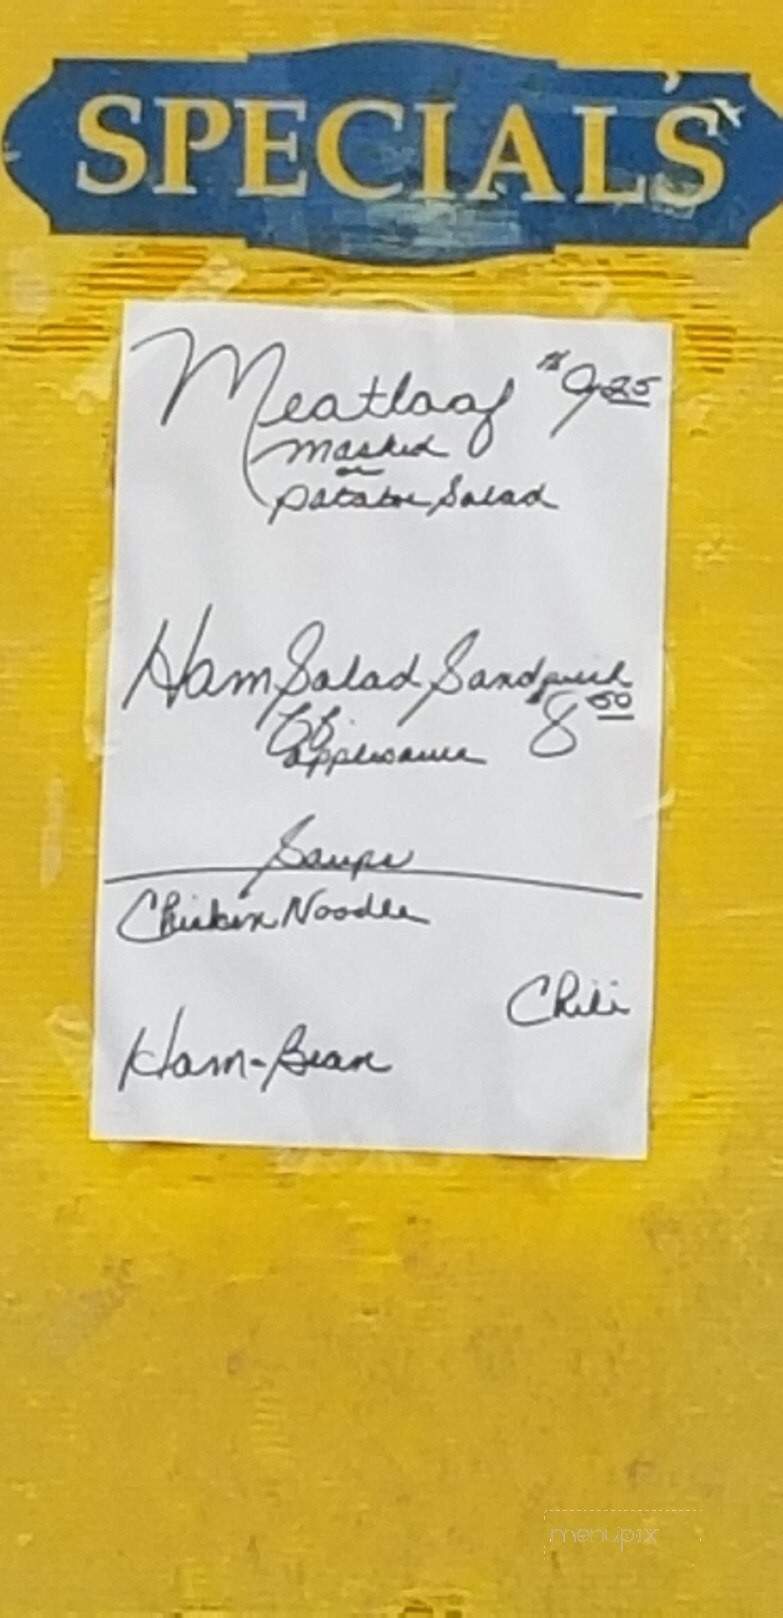 SPECIALS
Meatloaf $9.25
Mashed
or
Potatoe Salad
Ham Salad Sandwich
$8.50
FF
applesauce
Soups
Chicken Noodle
Chili
Ham-Bean
menupix